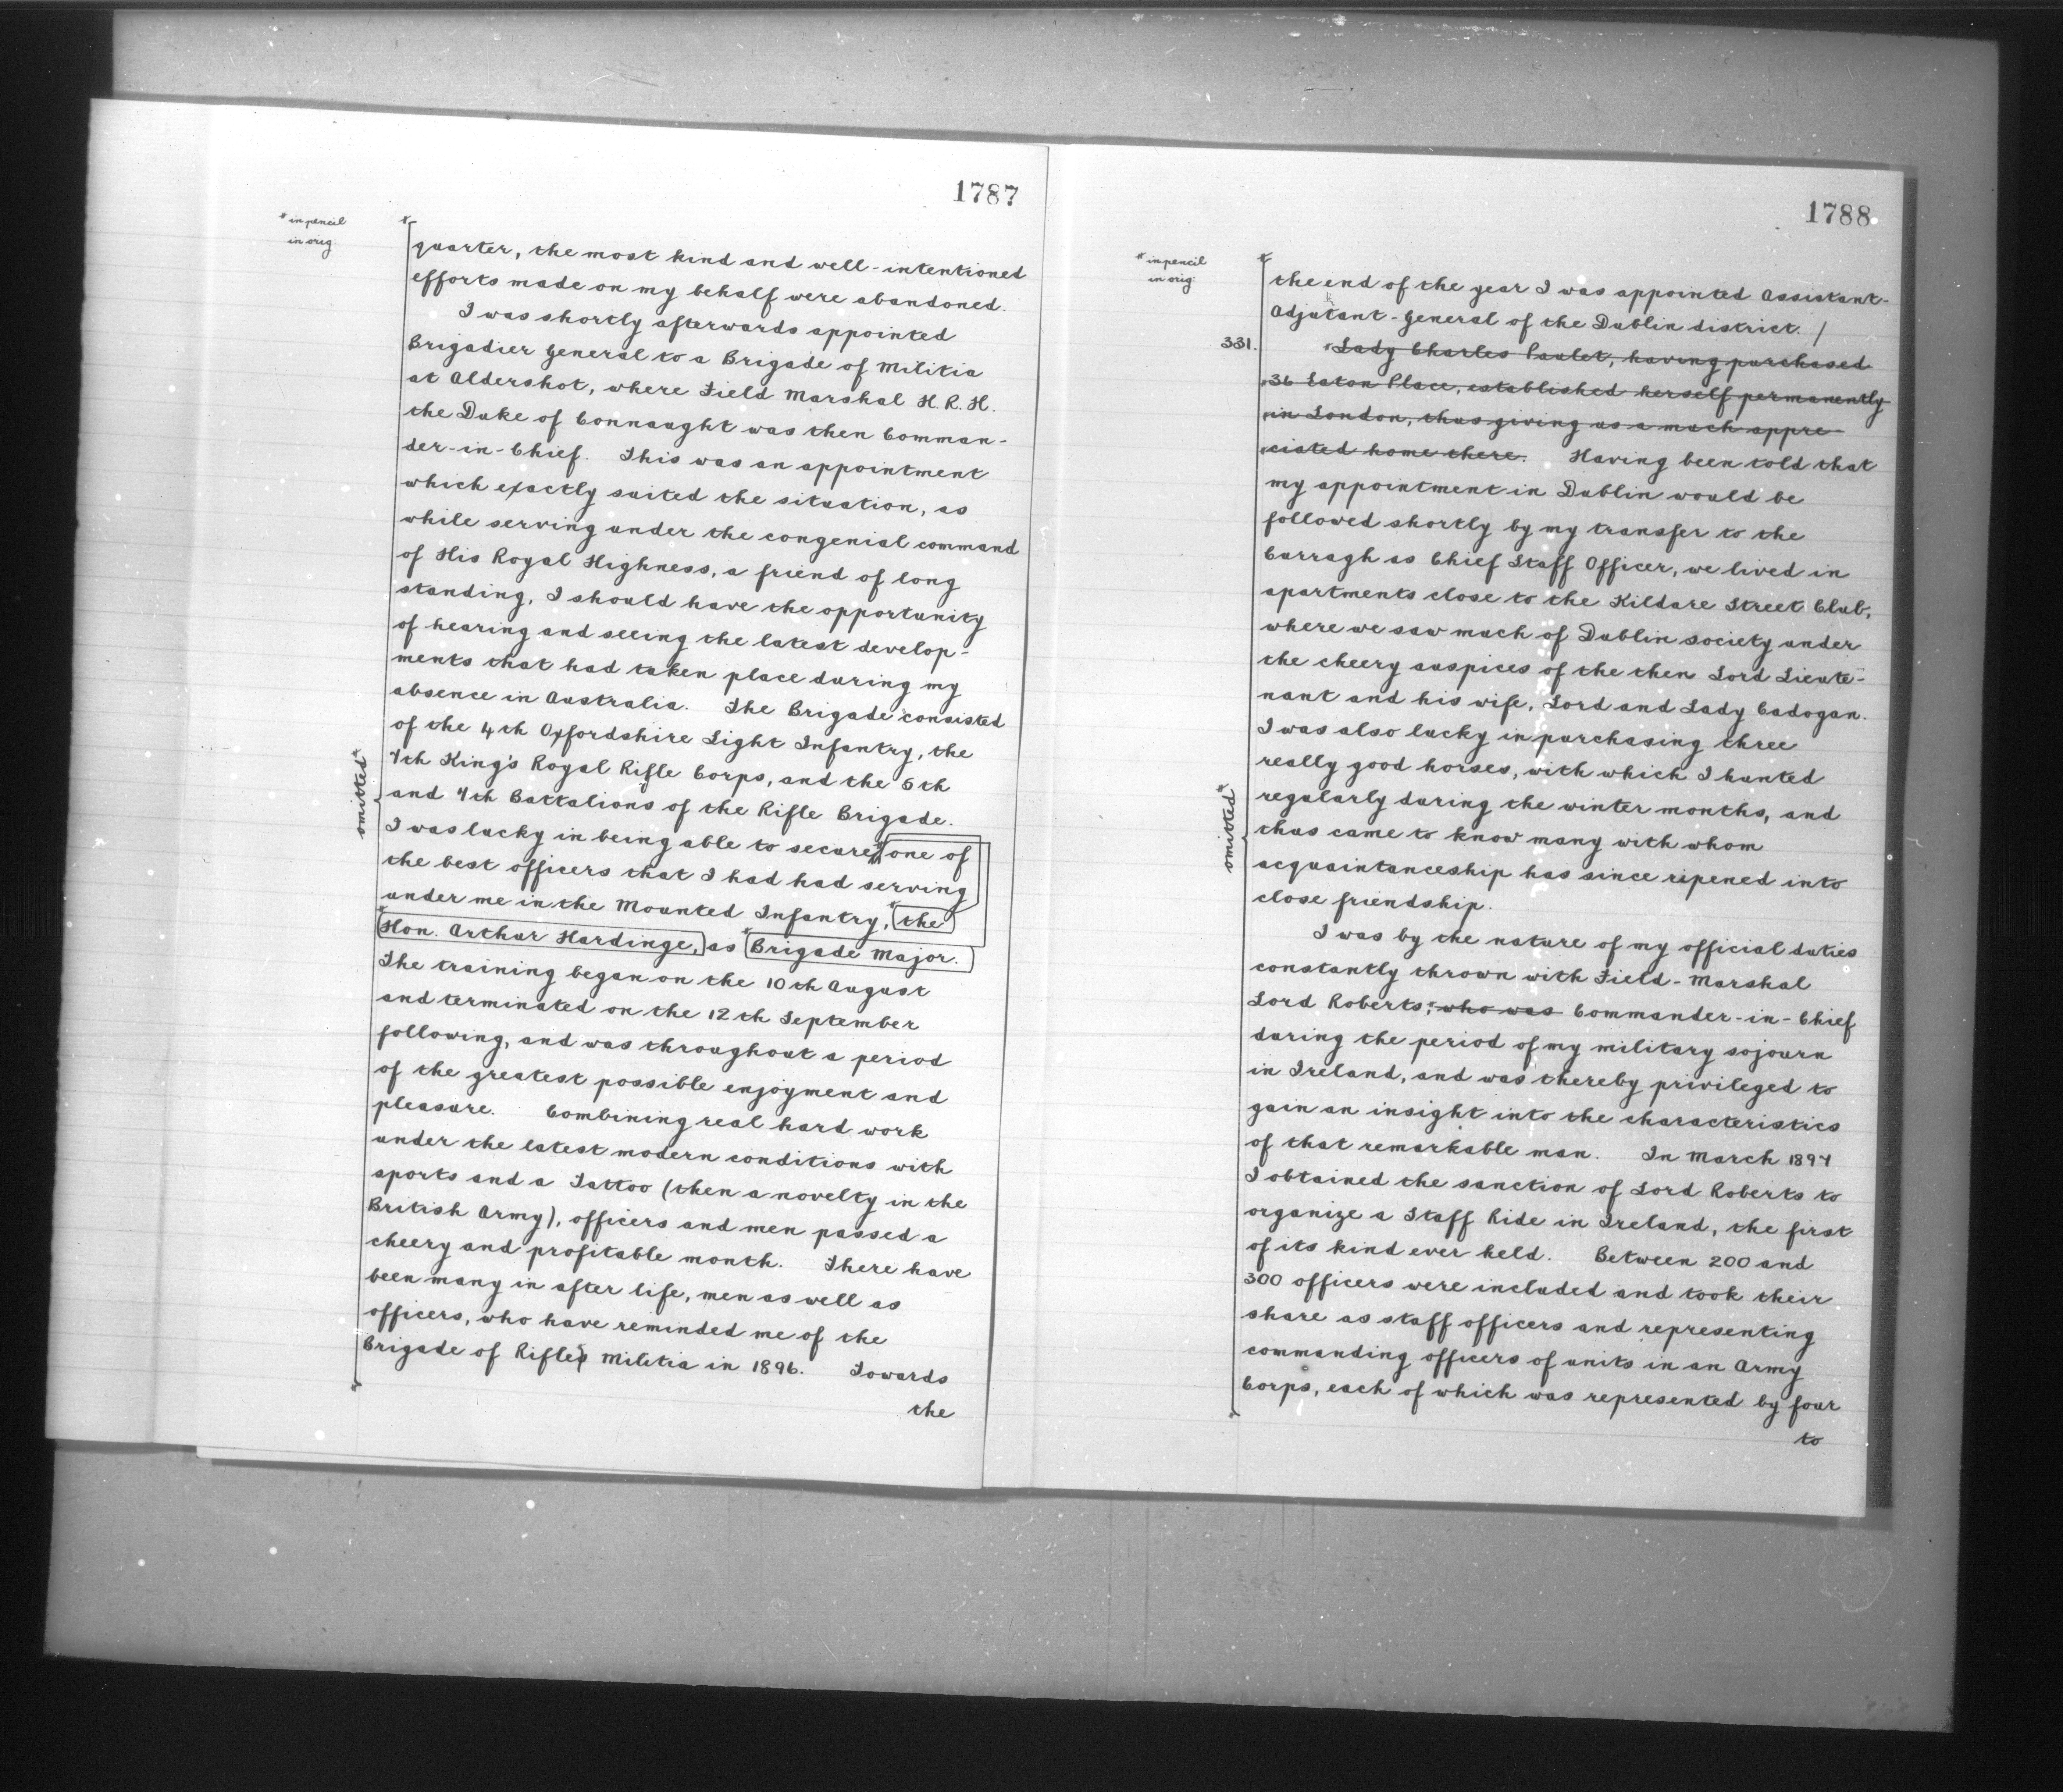 1787
* in pencil
in orig.
quarter, the most kind and well-intentioned
efforts made on my behalf were abandoned.
I was shortly afterwards appointed
Brigadier General to a Brigade of Militia
at Aldershot, where Field Marshal H.R.H.
the Duke of Connaught was then Comman-
der-in-Chief. This was an appointment
which exactly suited the situation, as
while serving under the congenial command
of His Royal Highness, a friend of long
standing, I should have the opportunity
of hearing and seeing the latest develop-
ments that had taken place during my
absence in Australia. The Brigade consisted
of the 4th Oxfordshire Light Infantry, the
7th King's Royal Rifle Corps, and the 5th
and 7th Battalions of the Rifle Brigade.
omitted*
I was lucky in being able to secure one of
the best officers that I had had serving
under me in the Mounted Infantry, *the
*Hon. Arthur Hardinge, as *Brigade Major.
The training began on the 10th August
and terminated on the 12th September
following, and was throughout a period
of the greatest possible enjoyment and
pleasure. Combining real hard work
under the latest modern conditions with
sports and a Tattoo (then a novelty in the
British Army), officers and men passed a
cheery and profitable month. There have
been many in after life, men as well as
officers, who have reminded me of the
Brigade of Rifle Militia in 1896. Towards
the
1788
* in pencil
in orig.
the end of the year I was appointed Assistant-
Adjutant-General of the Dublin district. /
331. Lady Charles Paulet, having purchased
36 Eaton Place, established herself permanently
in London, thus giving us a much appre-
ciated home there. Having been told that
my appointment in Dublin would be
followed shortly by my transfer to the
Curragh as Chief Staff Officer, we lived in
apartments close to the Kildare Street Club,
where we saw much of Dublin society under
the cheery auspices of the then Lord Lieute-
nant and his wife, Lord and Lady Cadogan.
I was also lucky in purchasing three
really good horses, with which I hunted
regularly during the winter months, and
omitted*
thus came to know many with whom
acquaintanceship has since ripened into
close friendship.
I was by the nature of my official duties
constantly thrown with Field-Marshal
Lord Roberts, who was Commander-in-Chief
during the period of my military sojourn
in Ireland, and was thereby privileged to
gain an insight into the characteristics
of that remarkable man. In March 1897
I obtained the sanction of Lord Roberts to
organize a Staff Ride in Ireland, the first
of its kind ever held. Between 200 and
300 officers were included and took their
share as staff officers and representing
commanding officers of units in an Army
Corps, each of which was represented by four
to